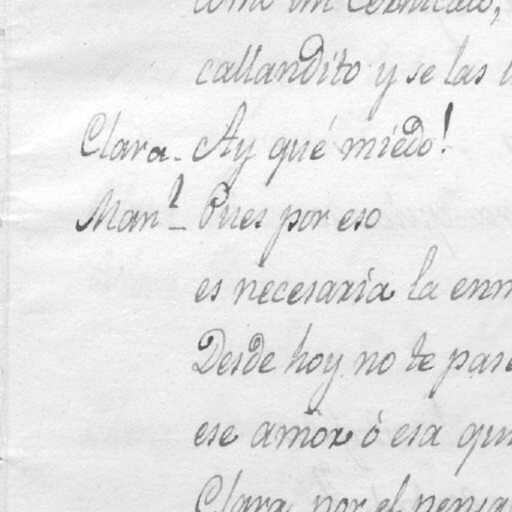 como un Cernícalo,
callandito y se las
Clara. Ay qué miedo!
Man.l Pues por eso
es necesaria la
Desde hoy no te
ese amor ó esa
Clara, por el